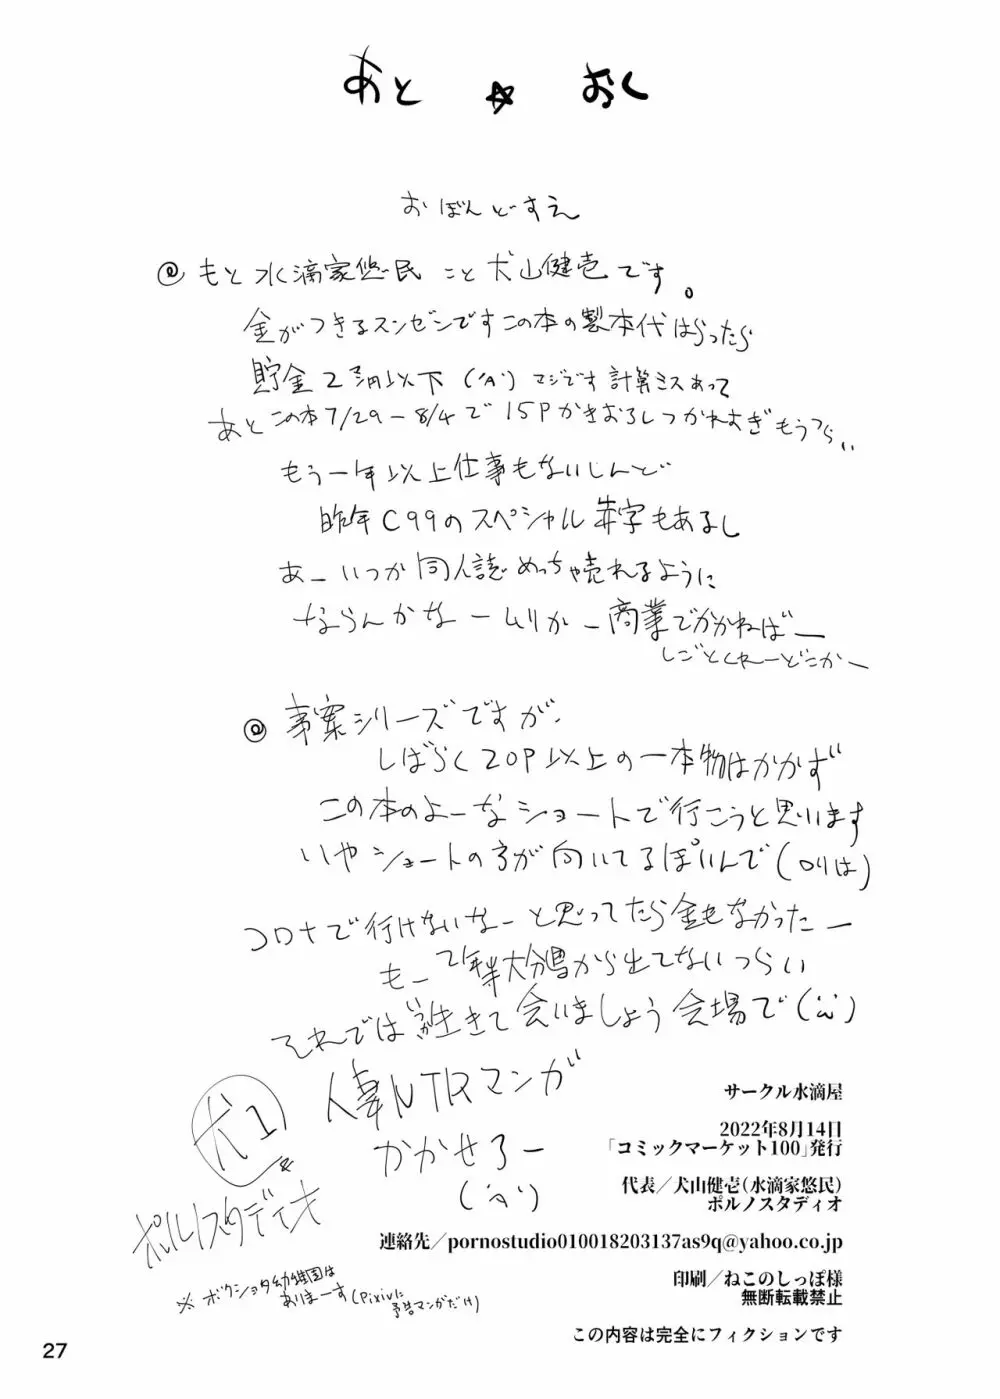 あと☆おく
おばんどすえ
@ もと水滴家悠民こと犬山健壱です。
金がつきるスンゼンですこの本の製本代はらったら
貯金2万円以下 マジです計算ミスあって
あとこの本7/29-8/4で15Pかきおろしつかれすぎもうつらい
もう一年以上仕事もないじんど
昨年C99のスペシャル赤字もあるし
あーいつか同人誌めっちゃ売れるように
ならんかなームリかー商業でかかねばー
しごとくれーどこかー
@ 事案シリーズですが、
しばらく20P以上の一本物はかかず
この本のよーなショートで行こうと思います
いやショートの方が向いてるぽいんで(ロリは)
コロナで行けないなーと思ってたら金もなかったー
もー2年半大分県から出てないつらい
それでは生きて会いましょう会場で
人妻NTRマンガ
かかせろー
犬1
ポルノスタディオ
※ボクショタ幼稚園は
ありまーす(Pixivに
予告マンガだけ)
サークル水滴屋
2022年8月14日
「コミックマーケット100」発行
代表／犬山健壱(水滴家悠民)
ポルノスタディオ
連絡先／pornostudio010018203137as9q@yahoo.co.jp
印刷／ねこのしっぽ様
無断転載禁止
この内容は完全にフィクションです
27